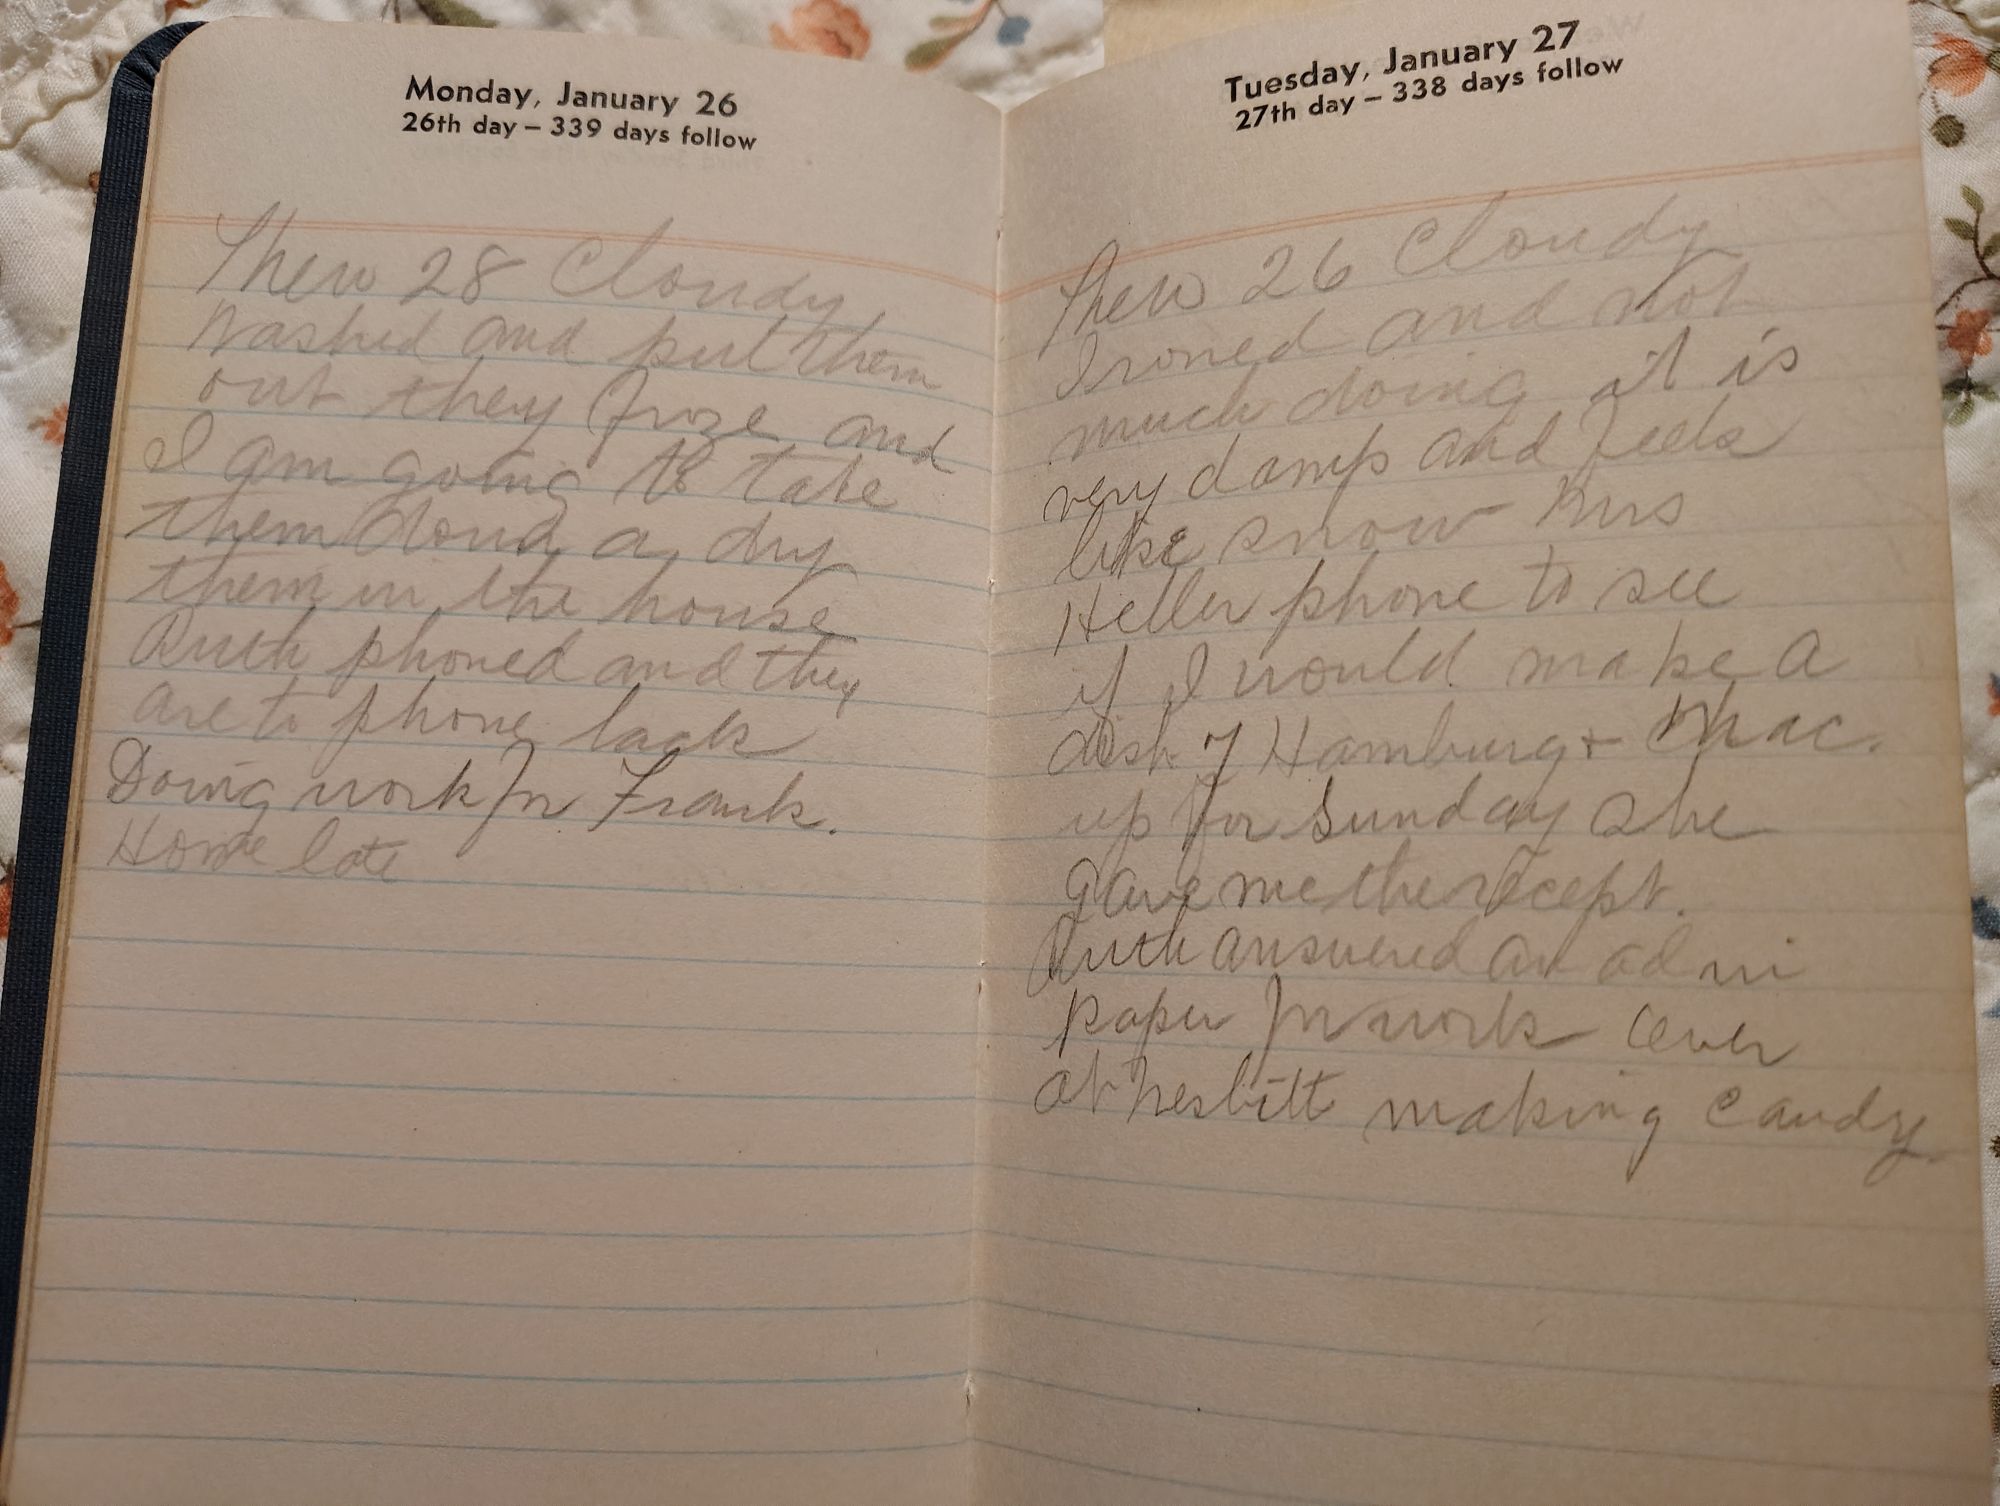 Monday, January 26
26th day – 339 days follow
Ther 28 Cloudy
Washed and put them
out they froze and
I am going to take
them down a dry
them in the house
Ruth phoned and they
are to phone back
Doing work for Frank.
Home late
Tuesday, January 27
27th day – 338 days follow
Ther 26 Cloudy
Ironed and not
much doing it is
very damp and feels
like snow Mrs
Heller phone to see
if I would make a
dish of Hamburg + Mac.
up for Sunday she
gave me the recept.
Ruth answered an ad in
paper for work over
at Nesbitt making candy.